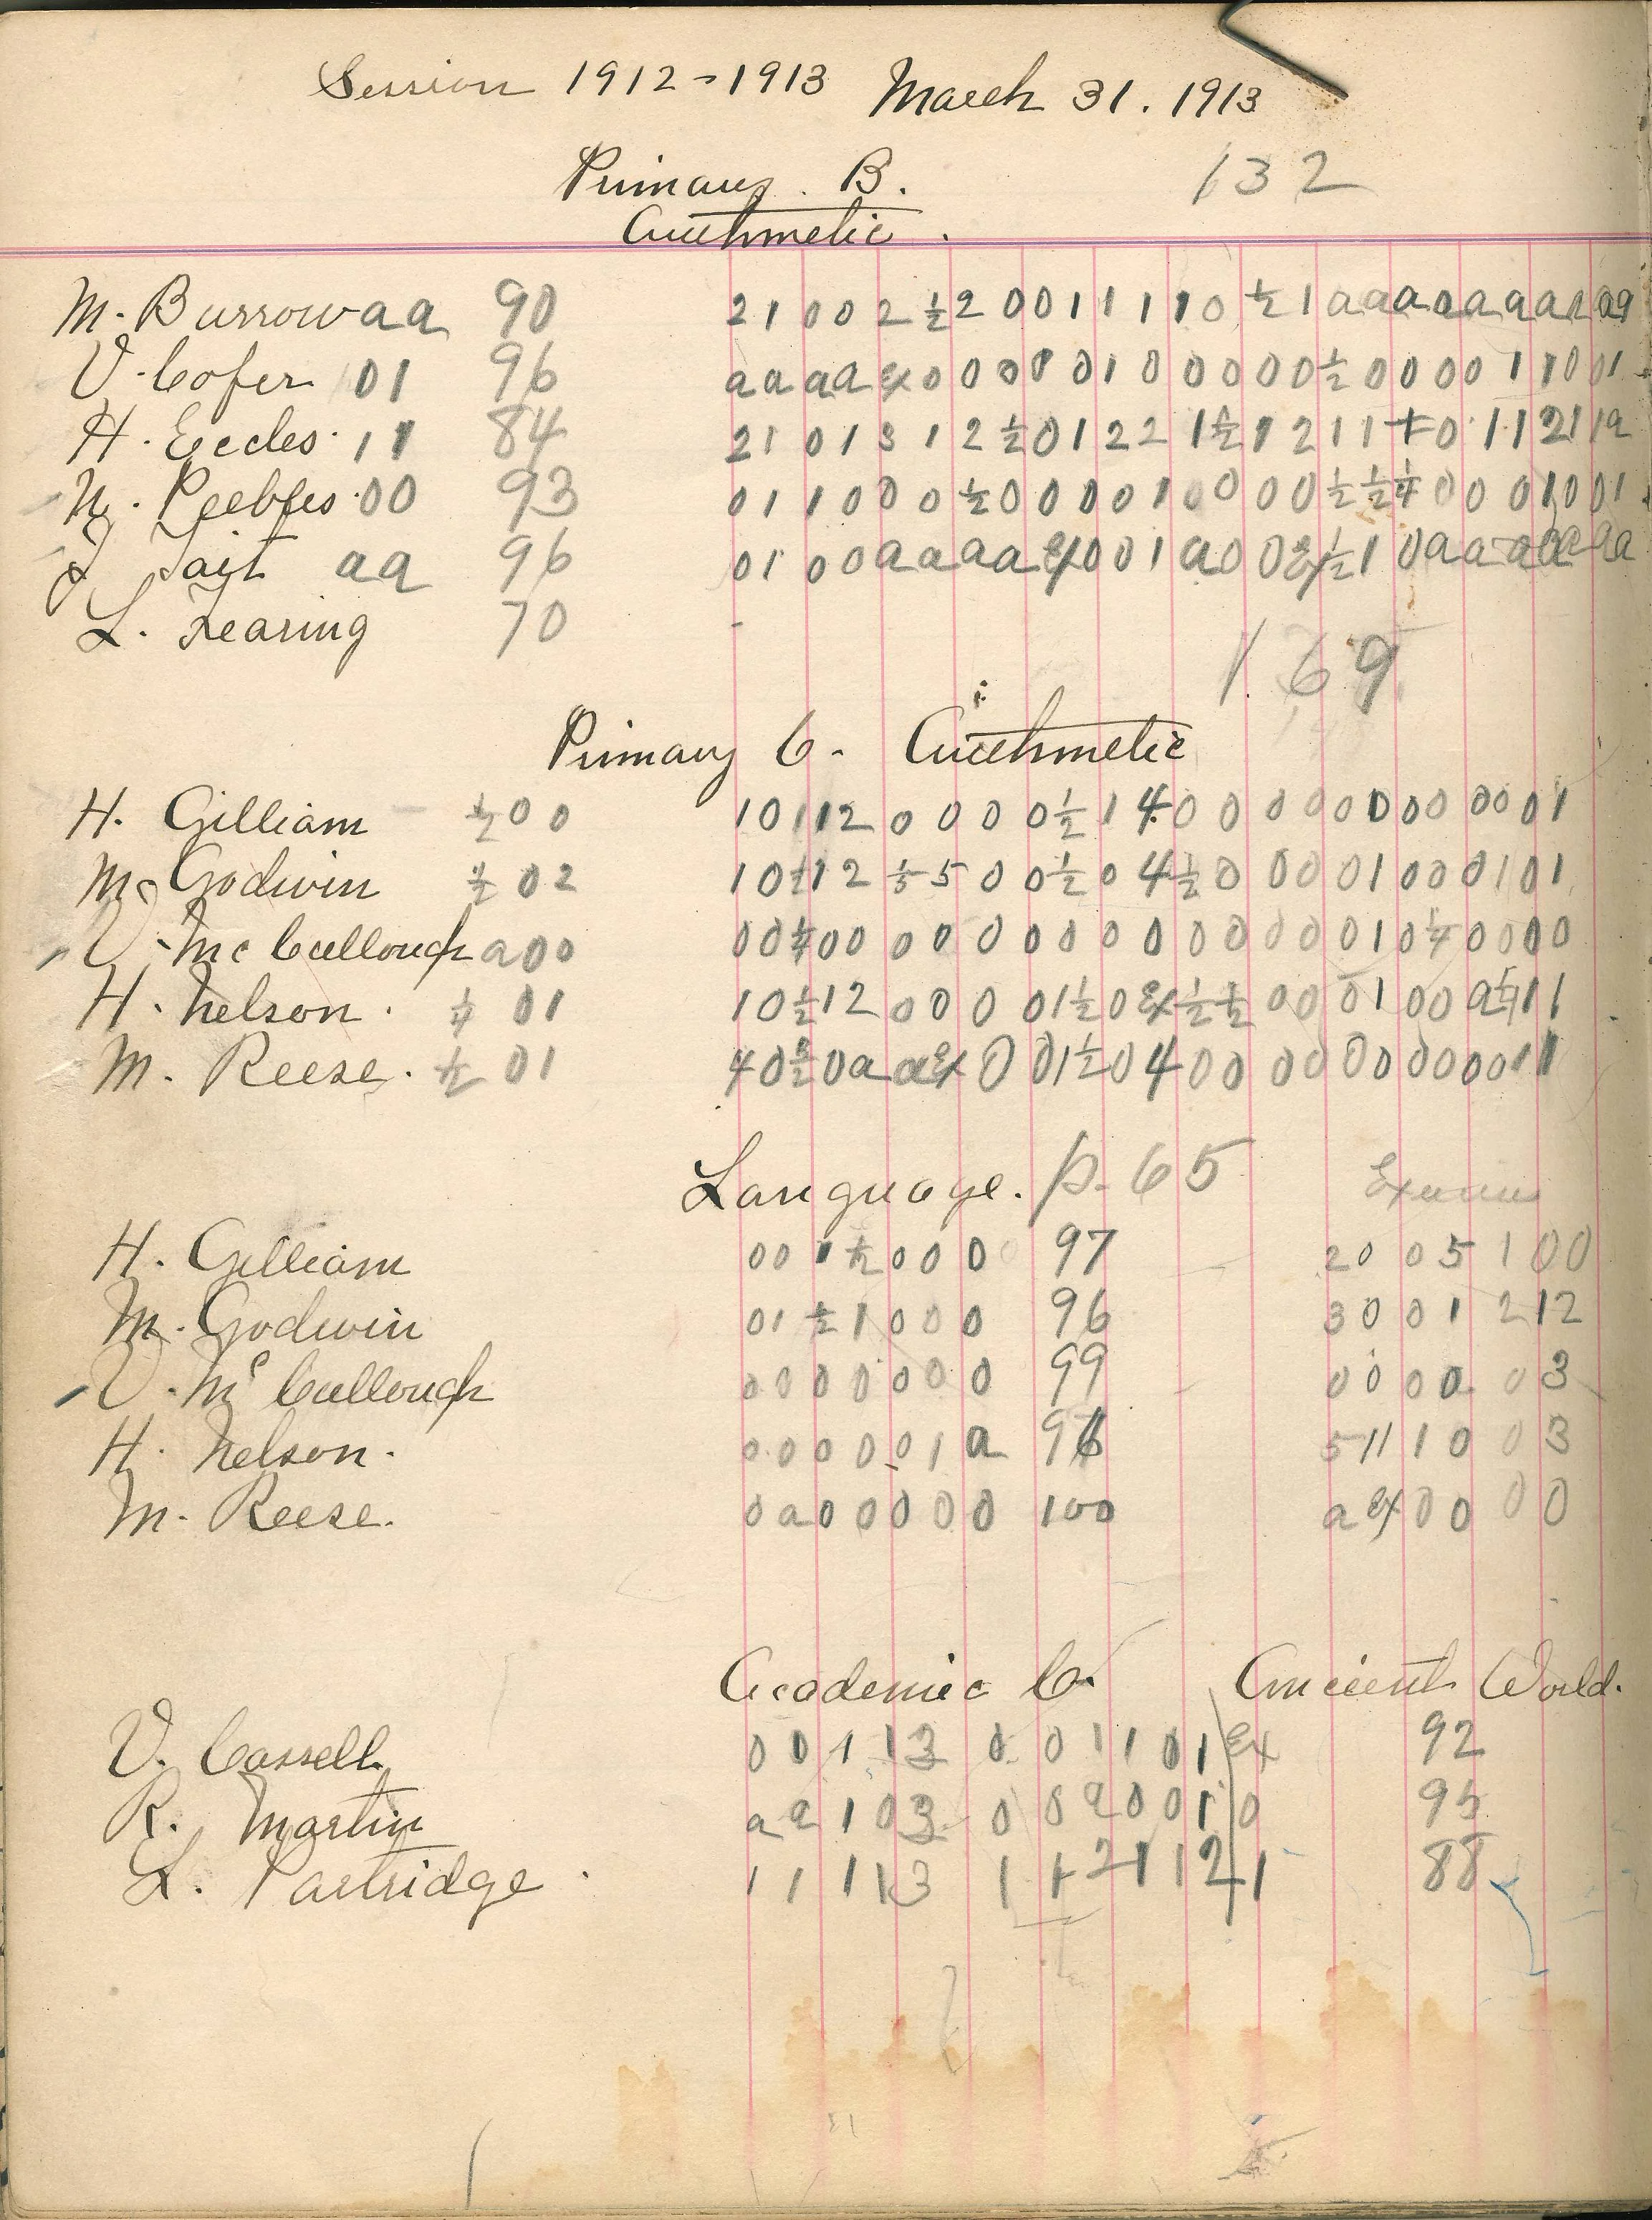 Session 1912-1913 March 31. 1913
Primary. B. 132
Arithmetic.
M. Burrow a a 90 2 1 0 0 2 ½ 2 0 0 1 1 1 1 0 ½ 1 a a a a a a a a a a
V. Cofer 0 1 96 a a a a ex 0 0 0 0 0 1 0 0 0 0 0 ½ 0 0 0 0 1 1 0 0 1
H. Eccles. 1 1 84 2 1 0 1 3 1 2 ½ 0 1 2 2 1 ½ 1 2 1 1 + 0 1 1 2 1 1 a
N. Peebles. 0 0 93 0 1 1 0 0 0 ½ 0 0 0 0 1 0 0 0 0 ½ ½ ¼ 0 0 0 1 0 0 1
J. Tait a a 96 0 1 0 0 a a a a ex 0 0 1 a 0 0 ex ½ 1 0 a a a a a a
L. Fearing 70
169
Primary C. Arithmetic
H. Gilliam ½ 0 0 1 0 1 1 2 0 0 0 0 ½ 1 4 0 0 0 0 0 0 0 0 0 0 1
M. Godwin ½ 0 2 1 0 ½ 1 2 ⅓ 5 0 0 ½ 0 4 ½ 0 0 0 0 1 0 0 0 1 0 1
V. McCullough a 0 0 0 0 ¼ 0 0 0 0 0 0 0 0 0 0 0 0 0 0 1 0 ¼ 0 0 0 0
H. Nelson. ¼ 0 1 1 0 ½ 1 2 0 0 0 0 1 ½ 0 ex ½ ½ 0 0 0 1 0 0 a ¼ 1 1
M. Reese. ½ 0 1 4 0 0 a a ex 0 0 1 ½ 0 4 0 0 0 0 0 0 0 0 0 0 1 1
Language. p. 65 Exam
H. Gilliam 0 0 1 ½ 0 0 0 0 97 2 0 0 5 1 0 0
M. Godwin 0 1 ½ 1 0 0 0 96 3 0 0 1 2 1 2
V. McCullough 0 0 0 0 0 0 0 99 0 0 0 0 0 3
H. Nelson. 0 0 0 0 0 1 a 96 5 1 1 1 0 0 3
M. Reese. 0 a 0 0 0 0 0 100 a ex 0 0 0 0
Academic C. Ancient World.
V. Cassell. 0 0 1 1 3 0 0 1 1 0 1 Ex 92
R. Martin a a 1 0 3 0 0 a 0 0 1 0 95
L. Partridge 1 1 1 1 3 1 1 2 1 1 2 1 88